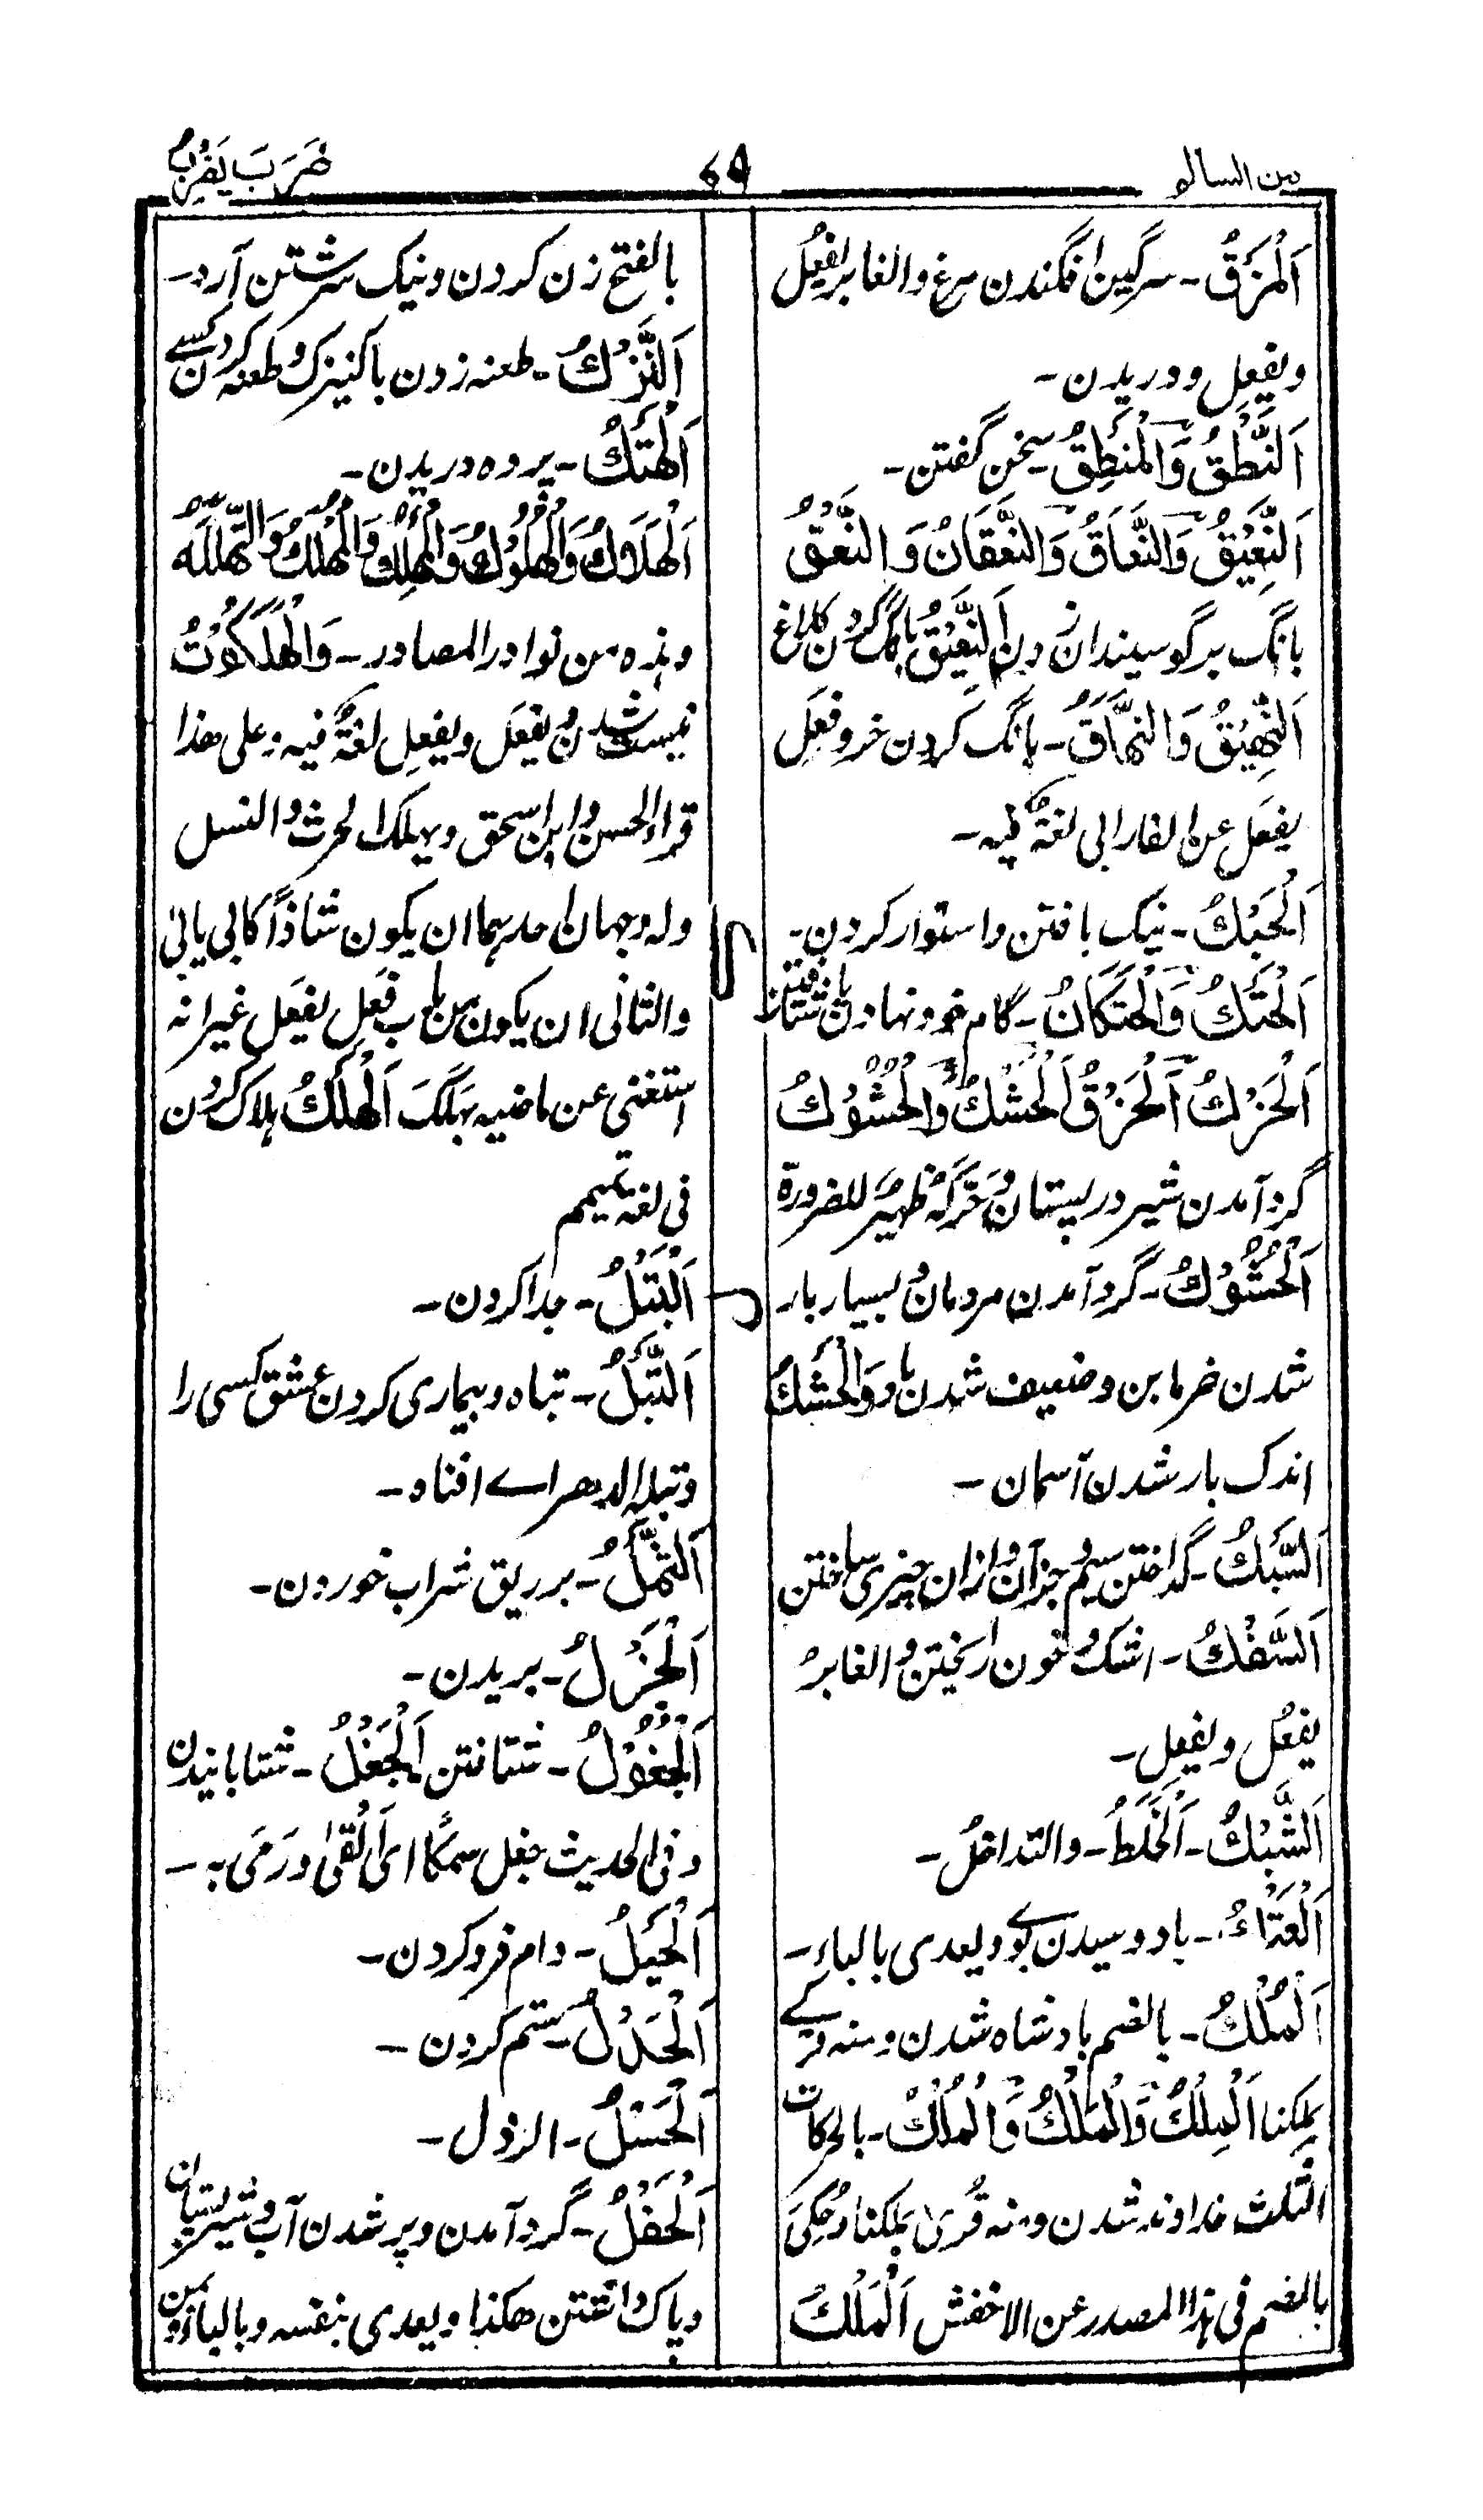 من السالم
۶۹
ضَرَبَ يَضْرِبُ
اَلْمَزْقُ ـ سرگین افگندن مرغ والغابر یفعُل
ویفعِل و دریدن ـ
اَلنُّطْقُ وَالْمَنْطِقُ ـ سخن گفتن ـ
اَلنَّعِيْقُ وَالنُّعَاقُ وَالنَّعَقَانُ وَالنَّعْقُ
بانگ بر گوسپندان زدن اَلنَّغِيْقُ بانگ کردن کلاغ
اَلنَّهِيْقُ وَالنُّهَاقُ ـ بانگ کردن خر وفعِل
یفعَل عن الفارابی لغةٌ فیه ـ
ك
اَلْحَبْكُ ـ نیک بافتن و استوار کردن ـ
اَلْحَتْكُ وَالْحَتَكَانُ ـ گام خرد نهادن باشتافتن
اَلْحَزْكُ اَلْحَزْقُ اَلْحَشْكُ وَالْحُشُوْكُ
گرد آمدن شیر در پستان وحَرَّكَهٗ زهیرٌ للضرورة
اَلْحُشُوْكُ ـ گرد آمدن مردمان و بسیار بار
شدن خرمابن وضعیف شدن باد وَالْحَشْكُ
اندک بار شدن آسمان ـ
اَلسَّبْكُ ـ گداختن سیم وجزآن و ازان چیزی ساختن
اَلسَّفْكُ ـ اشک و خون ریختن والغابرُ
یفعُل ویفعِل ـ
اَلشَّبْكُ ـ اَلْخَلْطُ ـ والتداخلُ ـ
اَلْعَتْكُ ـ بادوسیدن بوی ویعدی بالباء ـ
اَلْمُلْكُ ـ بالضم بادشاه شدن ومنه قرئ
بملکنا اَلْمِلْكُ وَالْمَلْكُ وَالْمُلْكُ ـ بالحرکات
الثلث خداوند شدن ومنه قُرِیَ بملکنا وحُکِیَ
بالضم فی هذا المصدر عن الاخفش اَلْمَلْكُ
بالفتح زن کردن ونیک سرشتن آرد ـ
اَلنَّزْكُ ـ طعنه زدن باکنیزک وطعنه کردن کسے
اَلْهَتْكُ ـ پرده دریدن ـ
اَلْهَلَاكُ وَالْهُلُوْكُ وَالْمَهْلِكُ وَالْمَهْلَكُ وَالتَّهْلُكَةُ
وهذه من نوادر المصادر ـ وَالْهَلَكُوْتُ
نیست شدن و یفعَل ویفعِل لغةٌ فیه وعلی هذا
قراء الحسن وابن اسحق ویهلک الحرث والنسل
وله وجهان احدهما ان یکون شاذًا کابی یابی
والثانی ان یکون من باب فعِل یفعَل غیر انه
استغنی عن ماضیه بهَلَكَ اَلْهَلْكُ هلاک کردن
فی لغة تمیم
ل
اَلْبَتْلُ ـ جدا کردن ـ
اَلتَّبْلُ ـ تباه وبیماری کردن عشق کسی را
وتبله الدهر اے افناه ـ
اَلثَّمْلُ ـ بر ریق شراب خوردن ـ
اَلْجَزْلُ ـ بریدن ـ
اَلْجُفُوْلُ ـ شتافتن اَلْجَفْلُ ـ شتابانیدن
وفی الحدیث جفل سمکًا ای اَلْقٰی ورَمٰی به ـ
اَلْحَبْلُ ـ دام فرو کردن ـ
اَلْحَدْلُ ـ ستم کردن ـ
اَلْحَسْلُ ـ الرذل ـ
اَلْحَفْلُ ـ گرد آمدن و پر شدن آب و شیر پستان
وباک داشتن هکذا ویعدی بنفسه وبالباء ومن